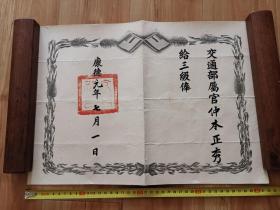 交通部屬官仲木正秀
給三級俸
康德元年七月一日